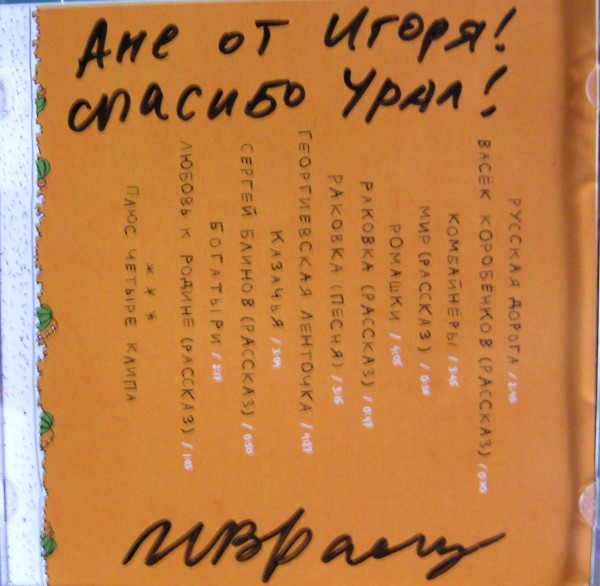 Ане от Игоря!
спасибо Урал!
РУССКАЯ ДОРОГА / 2:40
ВАСЁК КОРОБЕНКОВ (РАССКАЗ) / 0:40
КОМБАЙНЁРЫ / 3:45
МИР (РАССКАЗ) / 0:38
РОМАШКИ
РАКОВКА (РАССКАЗ) / 0:47
РАКОВКА (ПЕСНЯ) / 3:15
ГЕОРГИЕВСКАЯ ЛЕНТОЧКА / 4:27
КАЗАЧЬЯ / 3:04
СЕРГЕЙ БЛИНОВ (РАССКАЗ) / 0:50
БОГАТЫРИ / 3:17
ЛЮБОВЬ К РОДИНЕ (РАССКАЗ) / 1:03
***
ПЛЮС ЧЕТЫРЕ КЛИПА